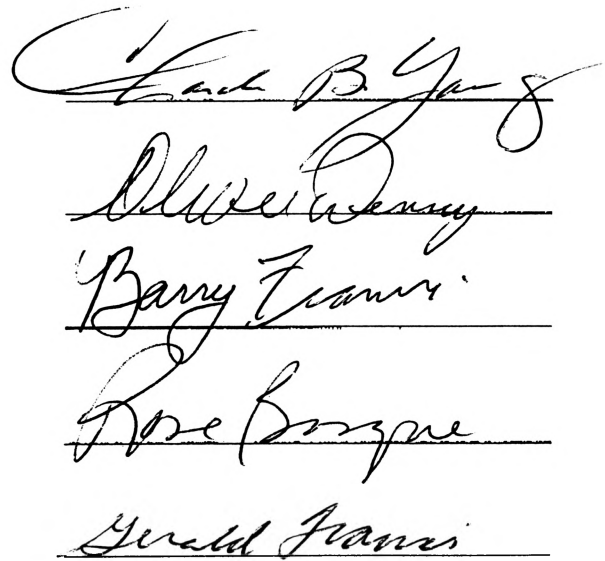 B. Young
Oliver Penney
Barry Francis
Rose Bosque
Gerald Francis